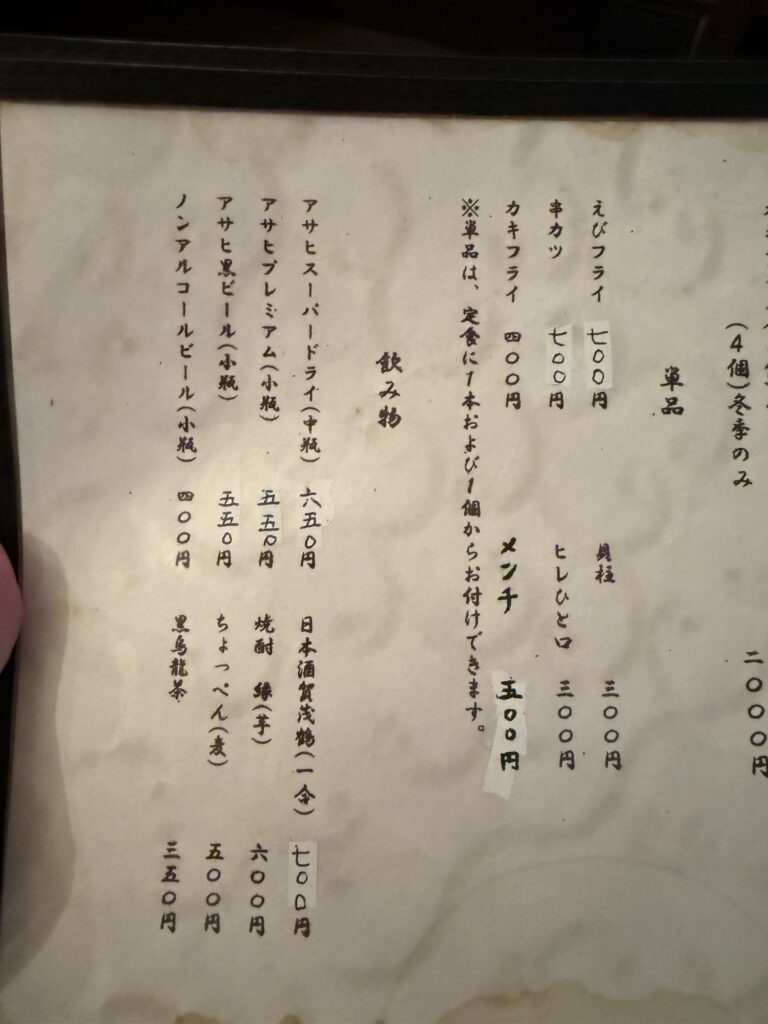 （4個）冬季のみ 二〇〇〇円
単品
えびフライ 七〇〇円
貝柱 三〇〇円
串カツ 七〇〇円
ヒレひと口 三〇〇円
カキフライ 四〇〇円
メンチ 五〇〇円
※単品は、定食に1本および1個からお付けできます。
飲み物
アサヒスーパードライ（中瓶） 六五〇円
日本酒賀茂鶴（一合） 七〇〇円
アサヒプレミアム（小瓶） 五五〇円
焼酎 縁（芋） 六〇〇円
アサヒ黒ビール（小瓶） 五五〇円
ちょっぺん（麦） 五〇〇円
ノンアルコールビール（小瓶） 四〇〇円
黒烏龍茶 三五〇円